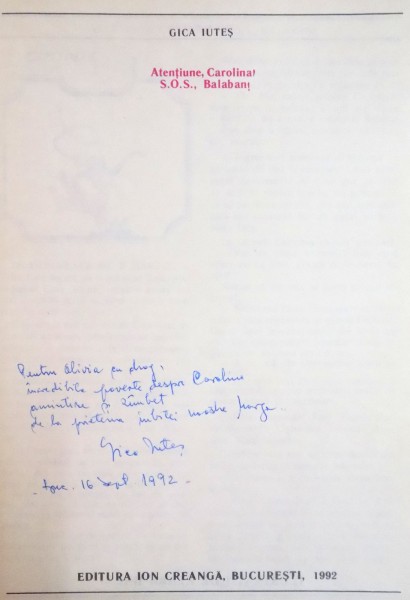 GICA IUTEȘ
Atențiune, Carolina!
S.O.S., Balaban!
Pentru Olivia cu drag,
incredibila poveste despre Carolina
amintire și zîmbet
de la prietena iubitei noastre Marga
Gica Iuteș
16 Sept 1992 -
EDITURA ION CREANGĂ, BUCUREȘTI, 1992